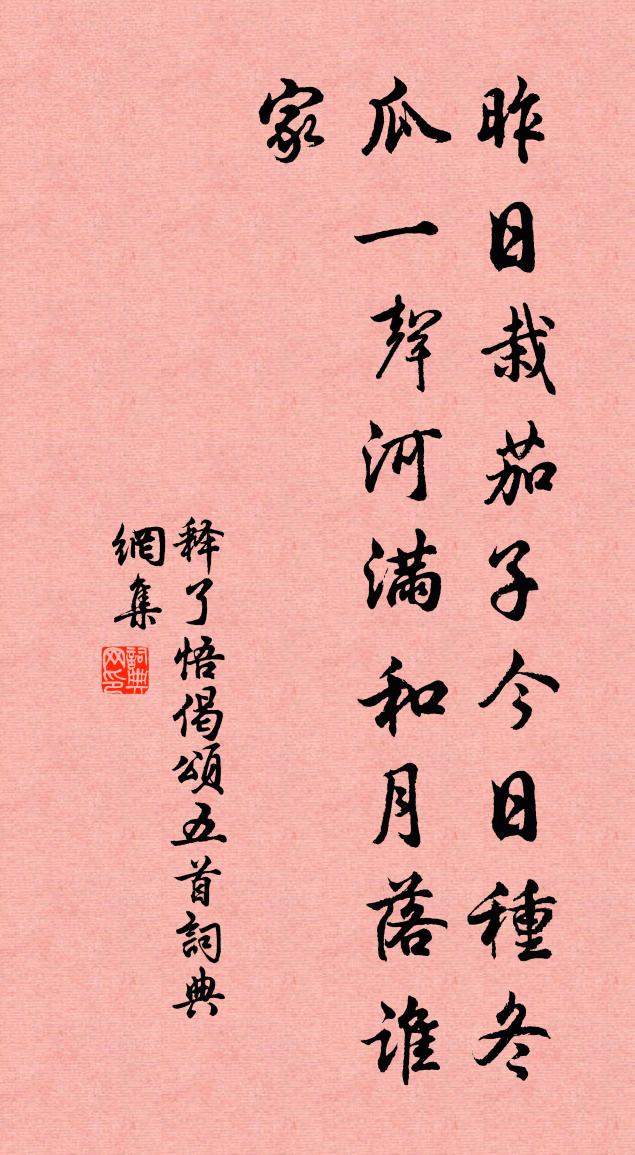 昨日栽茄子今日種冬
瓜一聲河滿和月落誰
家
释了悟偈頌五首詞典
網集
詞典
网印